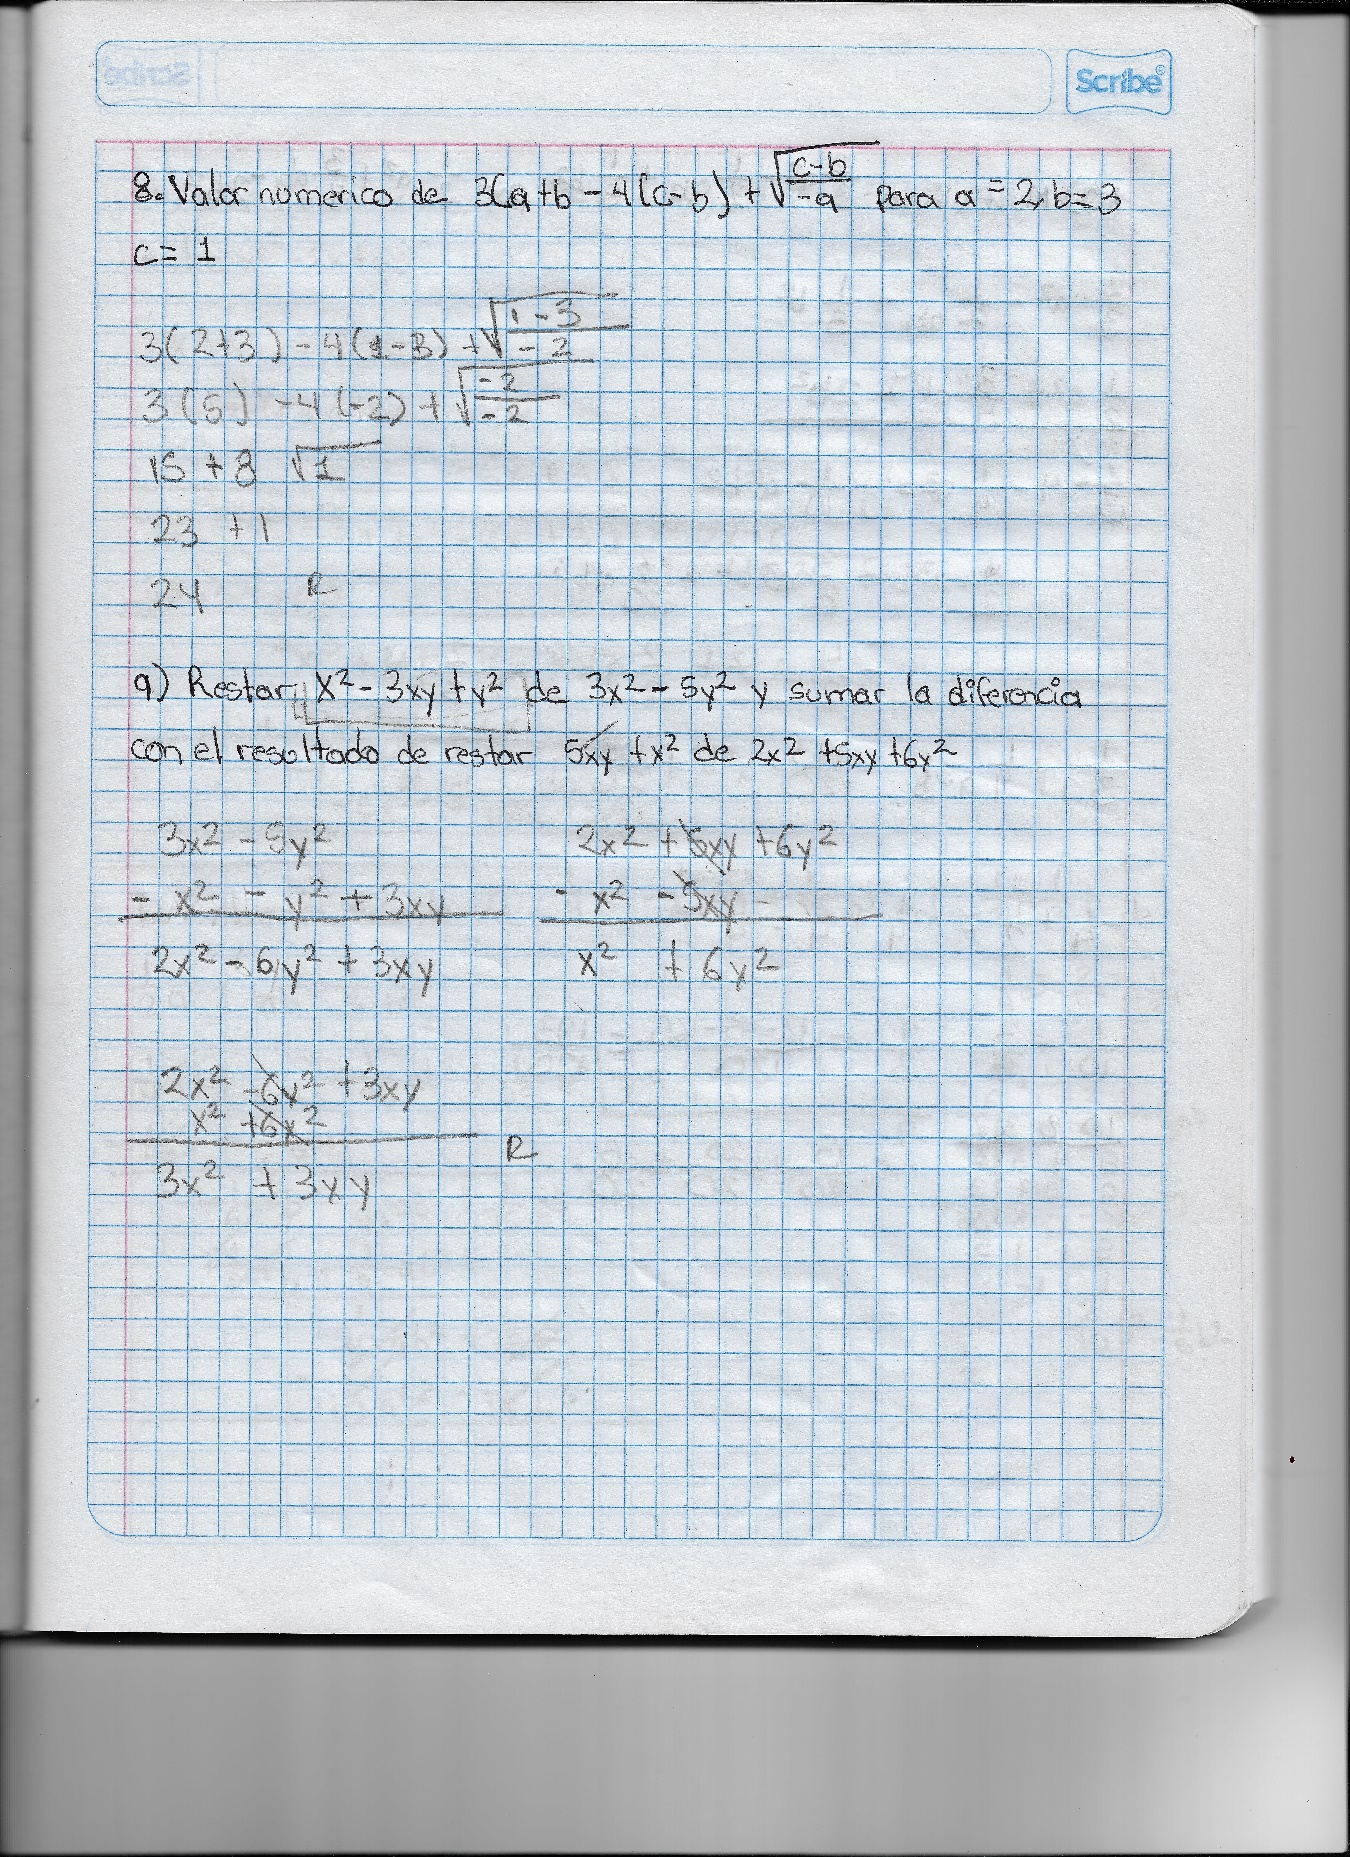 Scribe
8. Valor numerico de 3(a+b - 4(c-b) + √(c-b)/-a para a = 2, b = 3
c = 1
3(2+3) - 4(1-3) + √(1-3)/-2
3(5) - 4(-2) + √-2/-2
15 + 8 √1
23 + 1
24 R
9) Restar x² - 3xy + y² de 3x² - 5y² y sumar la diferencia
con el resultado de restar 5xy + x² de 2x² + 5xy + 6y²
3x² - 5y²
- x² - y² + 3xy
2x² - 6y² + 3xy
2x² + 5xy + 6y²
- x² - 5xy -
x² + 6y²
2x² - 6y² + 3xy
x² + 6x²
3x² + 3xy R